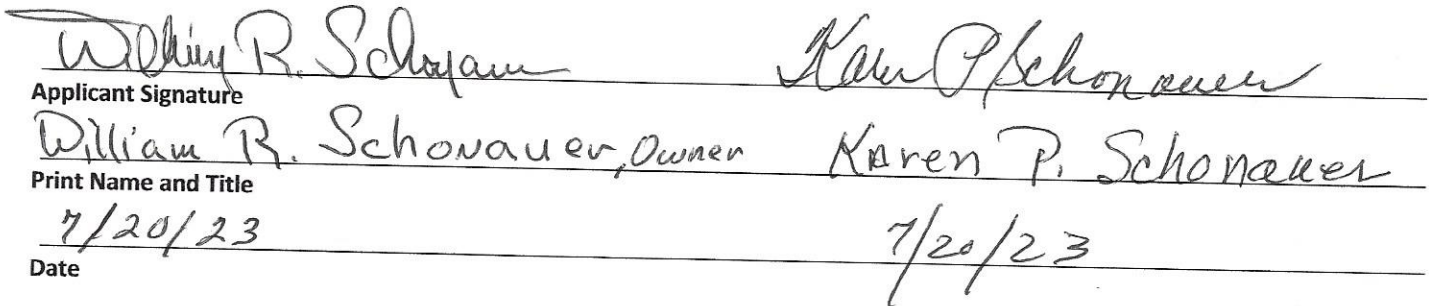 William R. Schonauer Karen P Schonauer
Applicant Signature
William R. Schonauer, Owner Karen P. Schonauer
Print Name and Title
7/20/23 7/20/23
Date